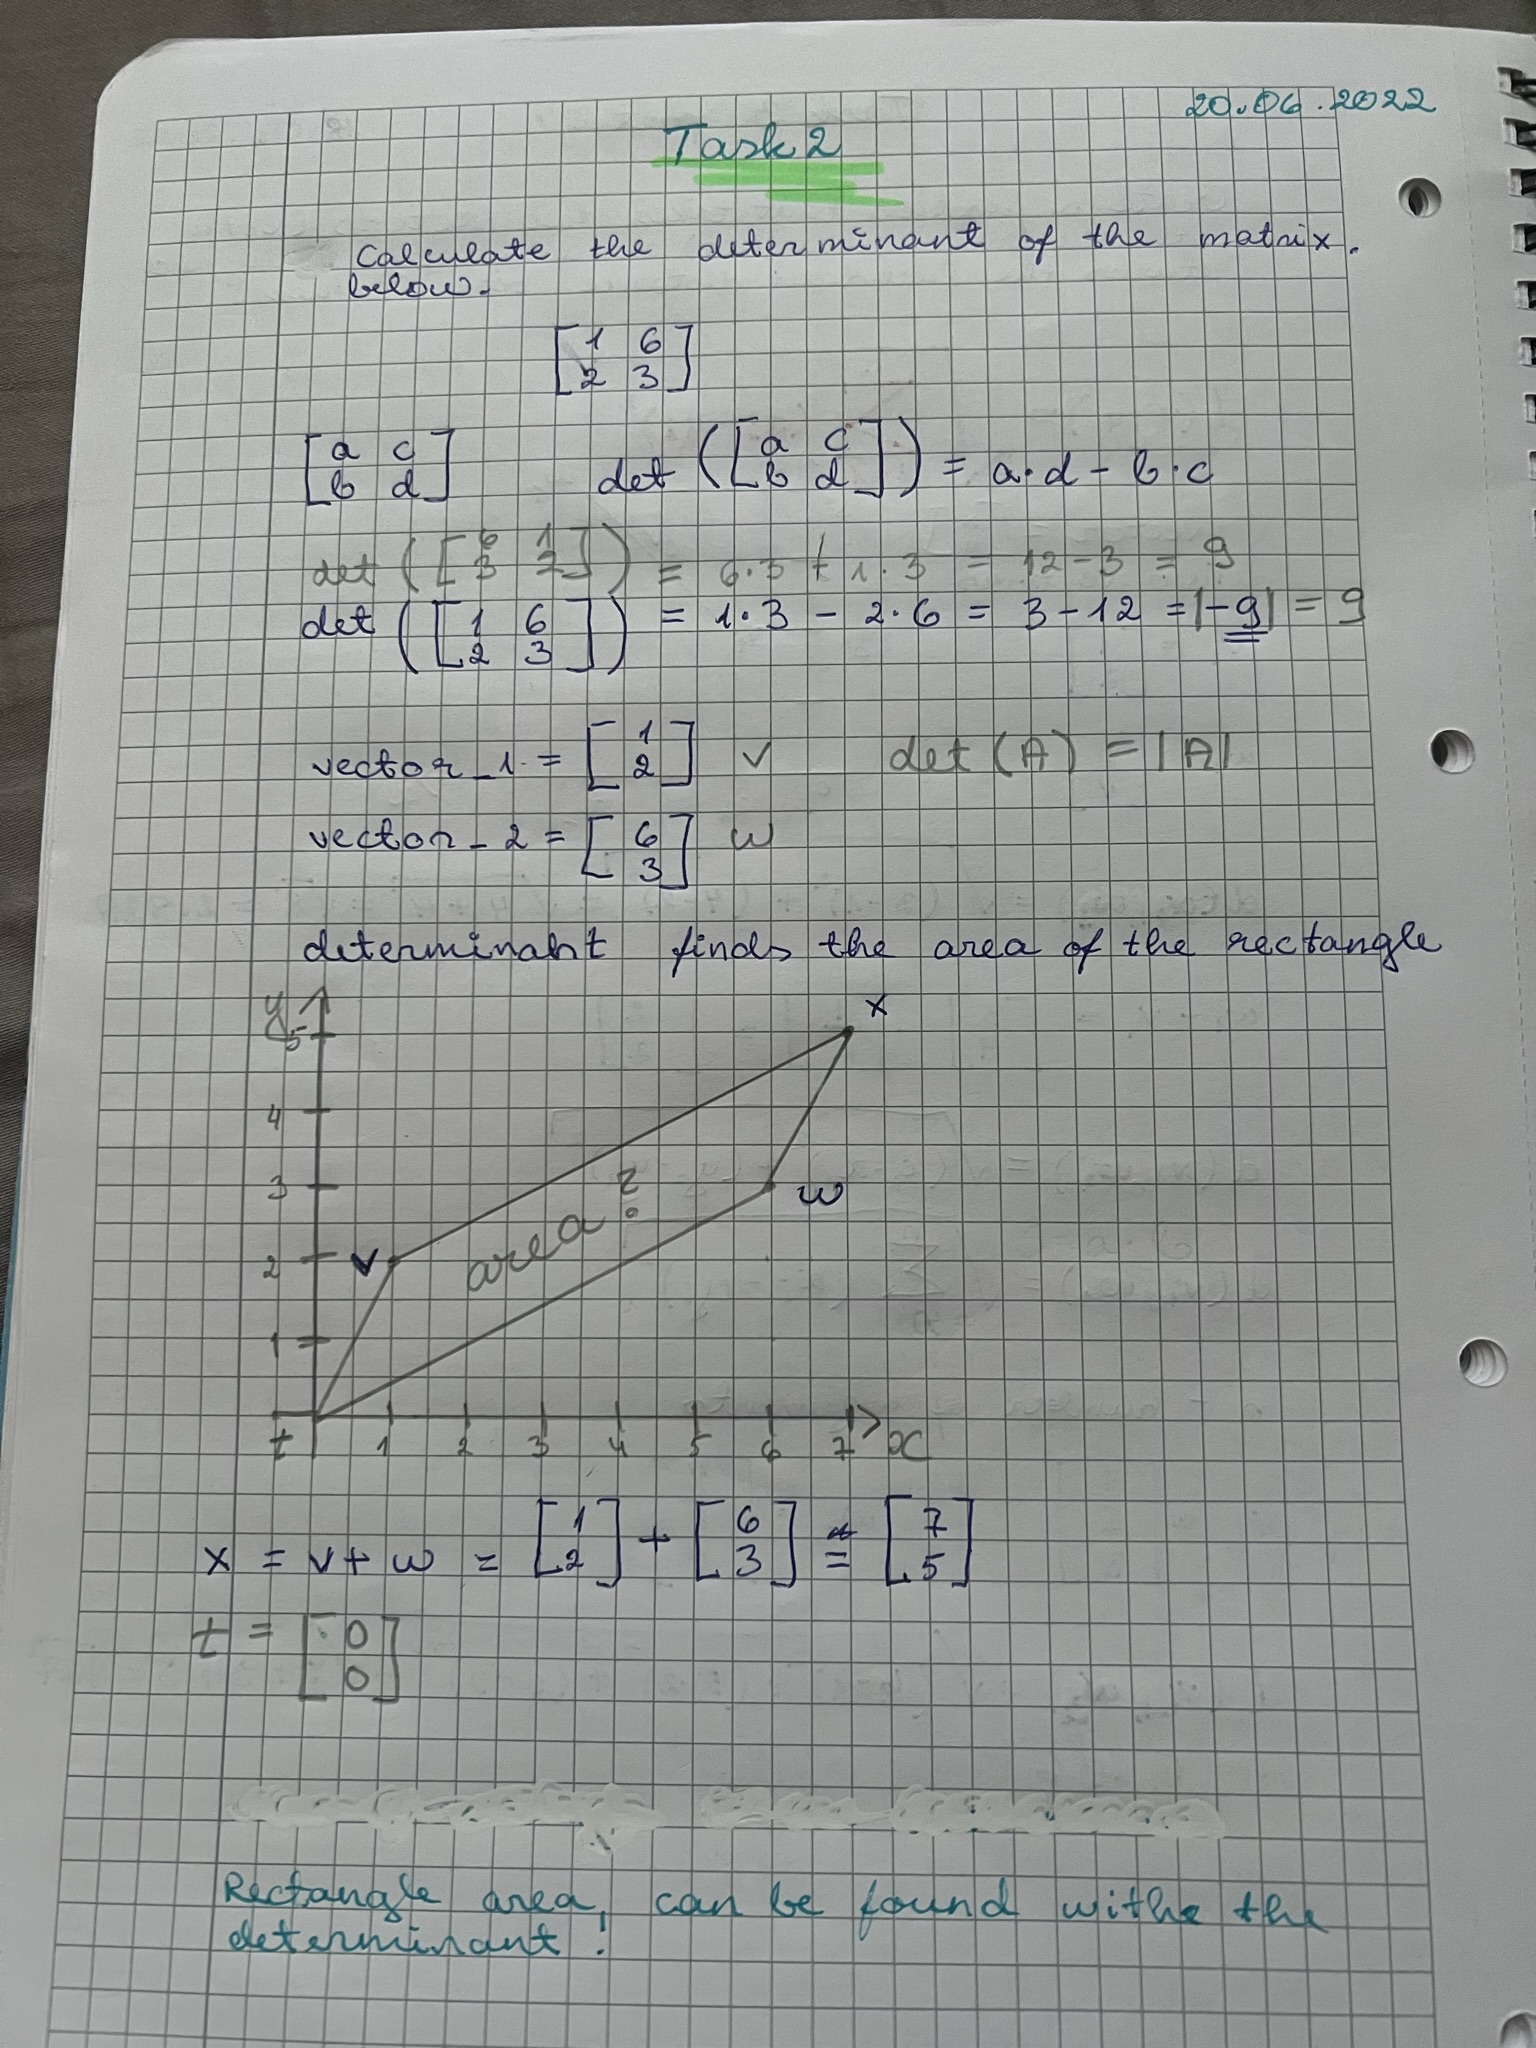 20.06.2022
Task 2
Calculate the determinant of the matrix.
below.
[1 6
2 3]
[a c
b d] det ([a c
b d]) = a·d - b·c
det ([6 1
3 2]) = 6·3 + 1·3 = 12-3 = 9
det ([1 6
2 3]) = 1·3 - 2·6 = 3-12 = |-9| = 9
vector_1 = [1
2] v det (A) = |A|
vector_2 = [6
3] w
determinant finds the area of the rectangle
y
x
5
4
3
w
area?
v
2
1
t 1 2 3 4 5 6 7 x
x = v+w = [1
2] + [6
3] = [7
5]
t = [0
0]
Rectangle area, can be found withe the
determinant!